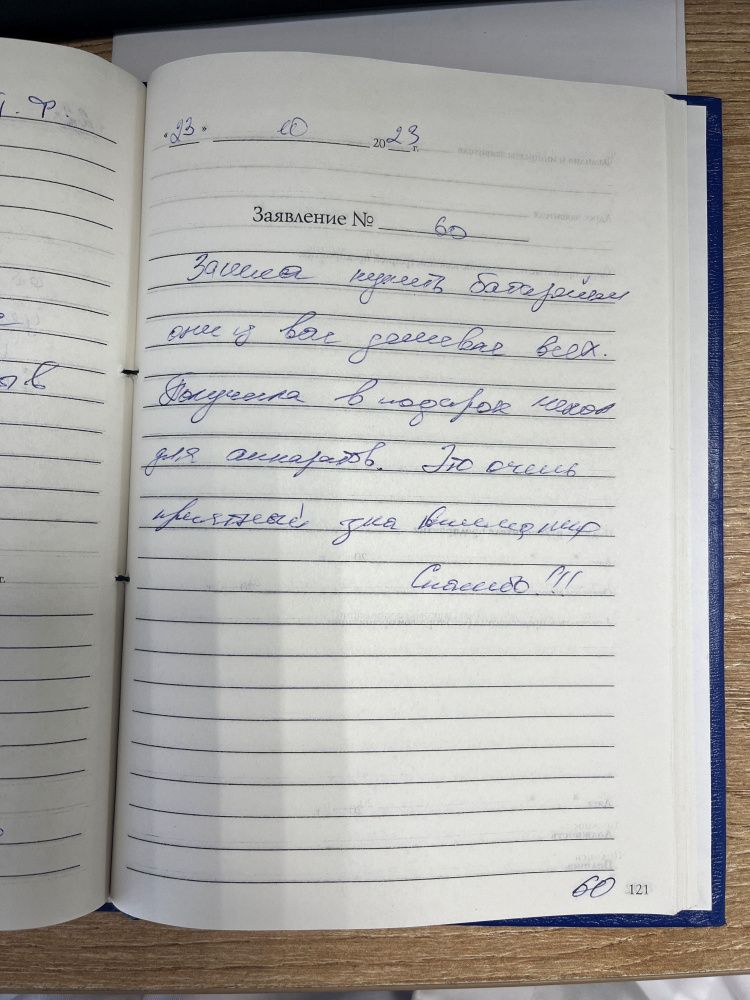 "23" 10 2023 г.
Заявление № 60
Зашла купить батарейки
они у вас дешевле всех.
Получила в подарок чехол
для аппаратов. Это очень
приятный знак внимания
Спасибо!!!
60 121